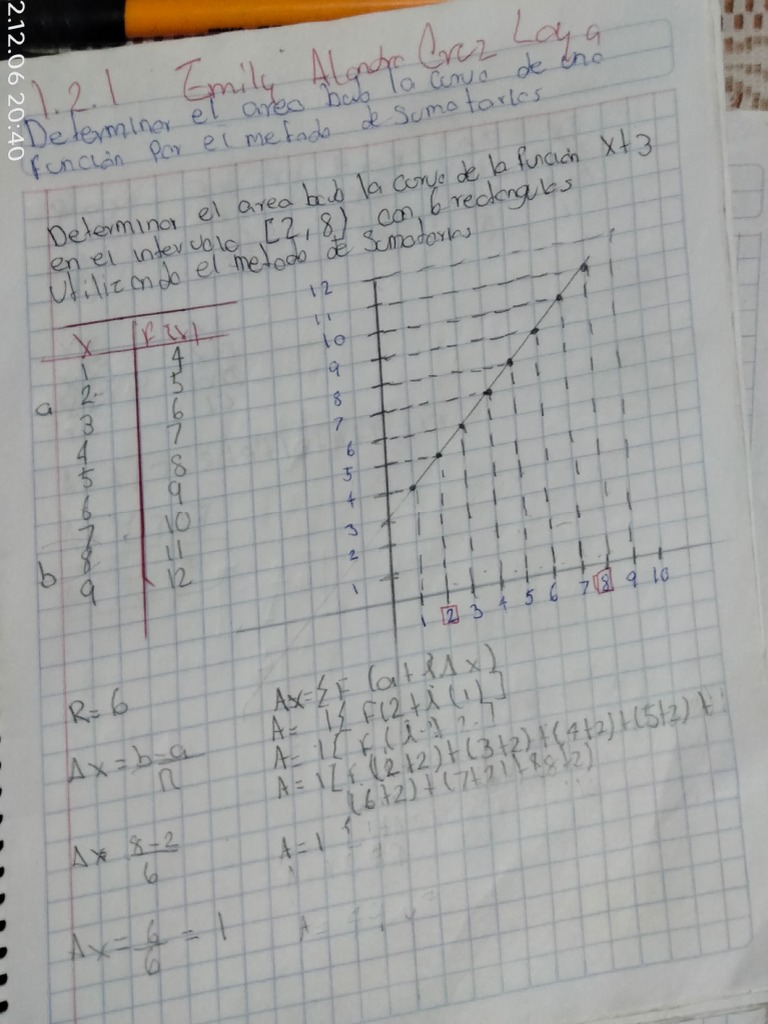 2.12.06 20:40
1.2.1 Emily Cruz Loya
Determinar el area bajo la curva de una
función por el metodo de sumatorias
Determinar el area bajo la curva de la función x+3
en el intervalo [2,8] con 6 rectangulos
utilizando el metodo de sumatorias
x F(x)
1 4
a 2 5
3 6
4 7
5 8
6 9
7 10
b 8 11
9 12
12
11
10
9
8
7
6
5
4
3
2
1
1 2 3 4 5 6 7 8 9 10
R=6
Δx = b-a
n
Δx 8-2
6
Δx = 6 = 1
6
Ax=Σ F (a+iΔx)
A= 1Σ F(2+i(1)]
A= 1[
A= 1[ (2+2)+(3+2)+(4+2)+(5+2)+
(6+2)+(7+2)+(8+2)
A=1
A=